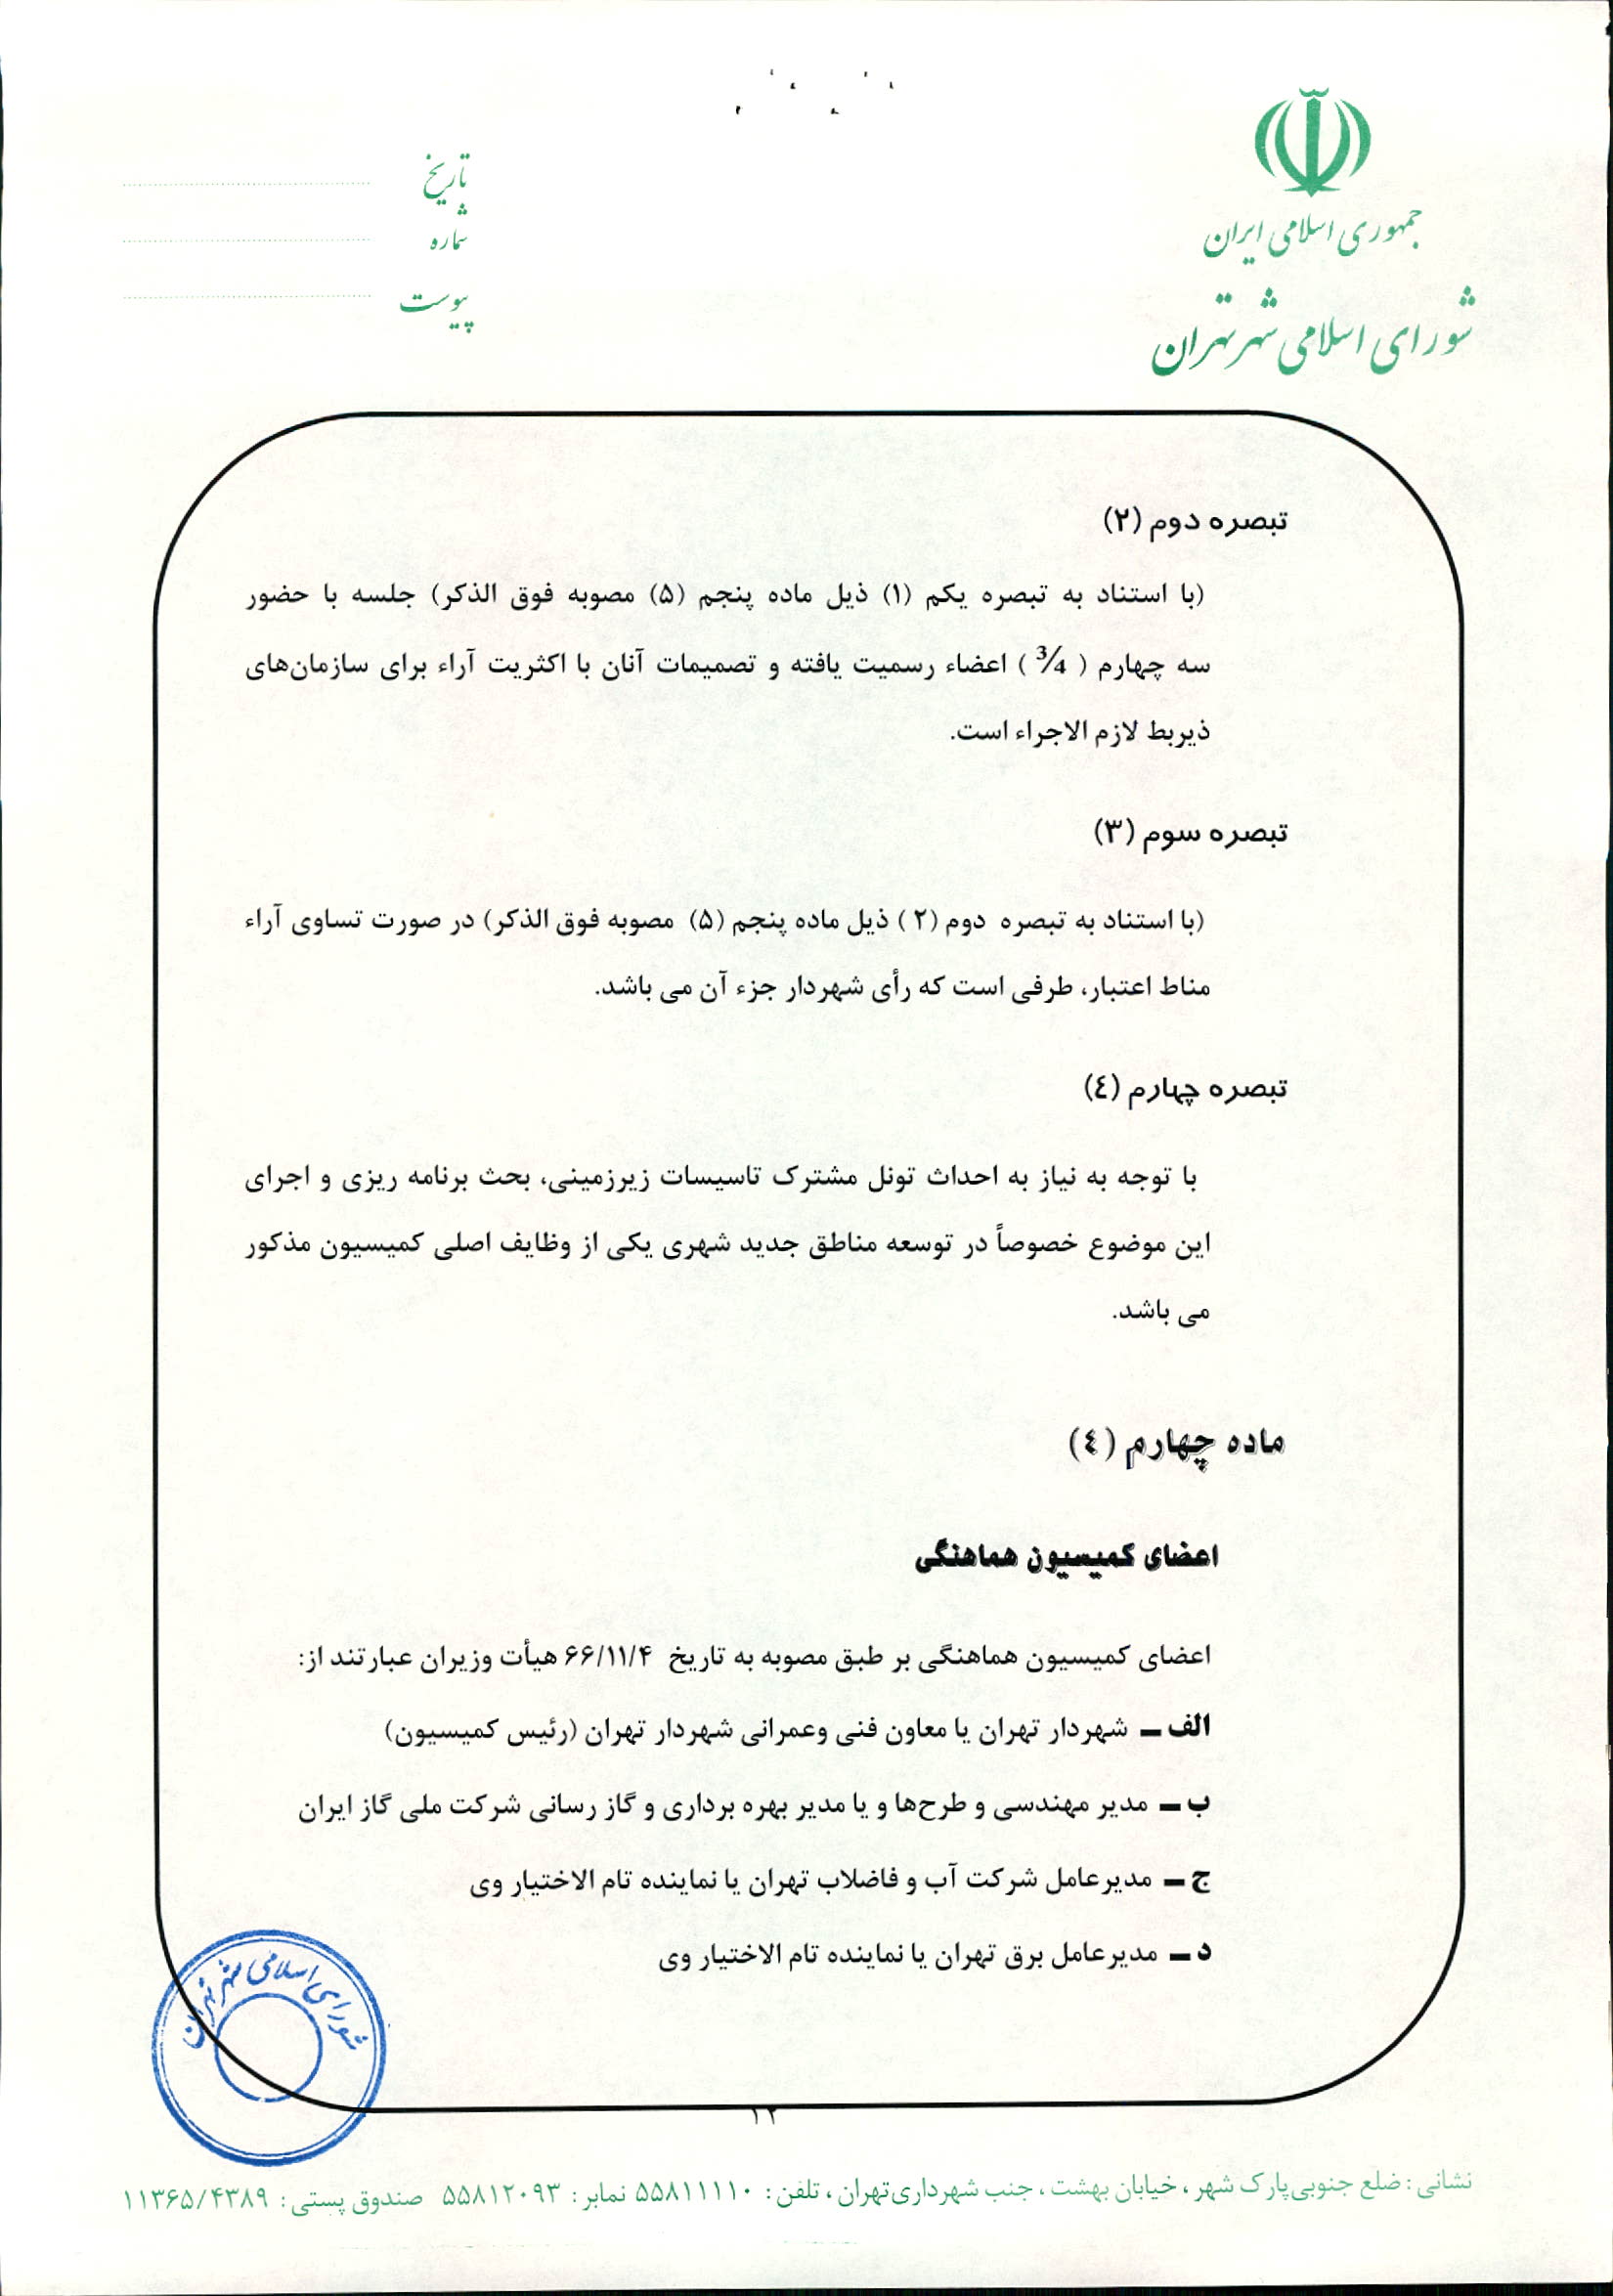 جمهوری اسلامی ایران
شورای اسلامی شهر تهران
تاریخ
شماره
پیوست
تبصره دوم (۲)
(با استناد به تبصره یکم (۱) ذیل ماده پنجم (۵) مصوبه فوق الذکر) جلسه با حضور
سه چهارم ( ¾ ) اعضاء رسمیت یافته و تصمیمات آنان با اکثریت آراء برای سازمان‌های
ذیربط لازم الاجراء است.
تبصره سوم (۳)
(با استناد به تبصره دوم (۲ ) ذیل ماده پنجم (۵) مصوبه فوق الذکر) در صورت تساوی آراء
مناط اعتبار، طرفی است که رأی شهردار جزء آن می باشد.
تبصره چهارم (٤)
با توجه به نیاز به احداث تونل مشترک تاسیسات زیرزمینی، بحث برنامه ریزی و اجرای
این موضوع خصوصاً در توسعه مناطق جدید شهری یکی از وظایف اصلی کمیسیون مذکور
می باشد.
ماده چهارم (٤)
اعضای کمیسیون هماهنگی
اعضای کمیسیون هماهنگی بر طبق مصوبه به تاریخ ۶۶/۱۱/۴ هیأت وزیران عبارتند از:
الف ـ شهردار تهران یا معاون فنی وعمرانی شهردار تهران (رئیس کمیسیون)
ب ـ مدیر مهندسی و طرح‌ها و یا مدیر بهره برداری و گاز رسانی شرکت ملی گاز ایران
ج ـ مدیرعامل شرکت آب و فاضلاب تهران یا نماینده تام الاختیار وی
د ـ مدیرعامل برق تهران یا نماینده تام الاختیار وی
شورای اسلامی شهر تهران
۱۲
نشانی : ضلع جنوبی پارک شهر ، خیابان بهشت ، جنب شهرداری تهران ، تلفن : ۵۵۸۱۱۱۱۰ نمابر : ۵۵۸۱۲۰۹۳ صندوق پستی : ۱۱۳۶۵/۴۳۸۹